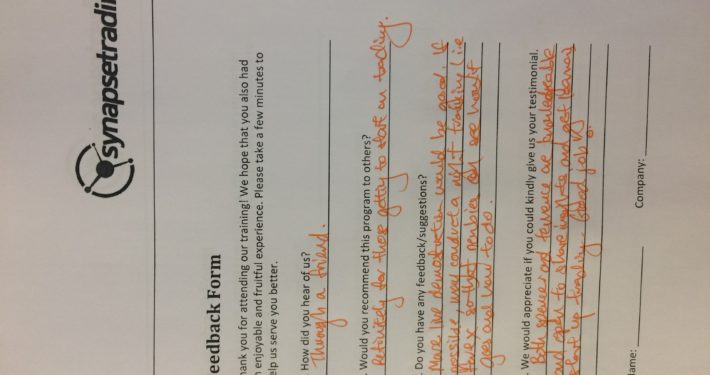 synapsetradin
eedback Form
hank you for attending our training! We hope that you also had
n enjoyable and fruitful experience. Please take a few minutes to
elp us serve you better.
How did you hear of us?
Through a friend.
Would you recommend this program to others?
Definitely for those getting to start on trading.
Do you have any feedback/suggestions?
More live demonstration would be good. If
possible, may conduct a night trading (i.e
forex so that newbies can see how it
goes and how to do.
We would appreciate if you could kindly give us your testimonial.
Both and are knowledgeable
and open to share insights and get learners
start up trading. Good job
Name:
Company: